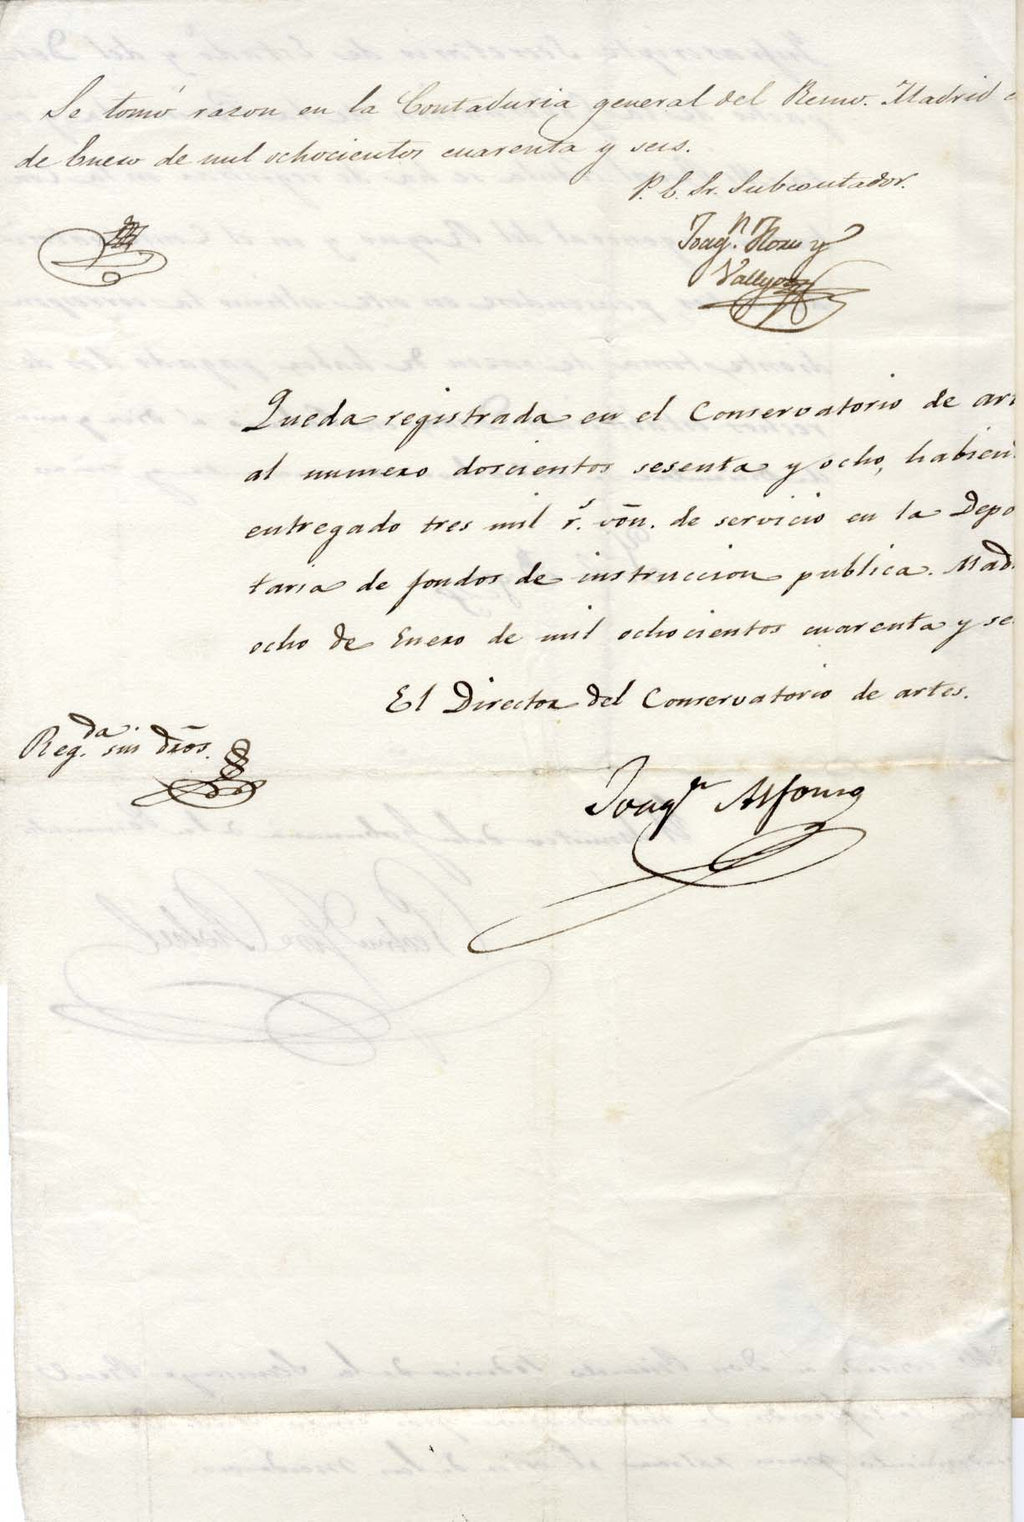 Se tomó razon en la Contaduria general del Reino. Madrid
de Enero de mil ochocientos cuarenta y seis.
P. E. Sr. Subcontador.
Joaqn. y
Queda registrada en el Conservatorio de ar
al numero doscientos sesenta y ocho, habien
entregado tres mil rs. von. de servicio en la Depo
taria de fondos de instruccion publica. Mad
ocho de Enero de mil ochocientos cuarenta y se
El Director del Conservatorio de artes.
Regda. sin dros.
Joaqn Alfonso